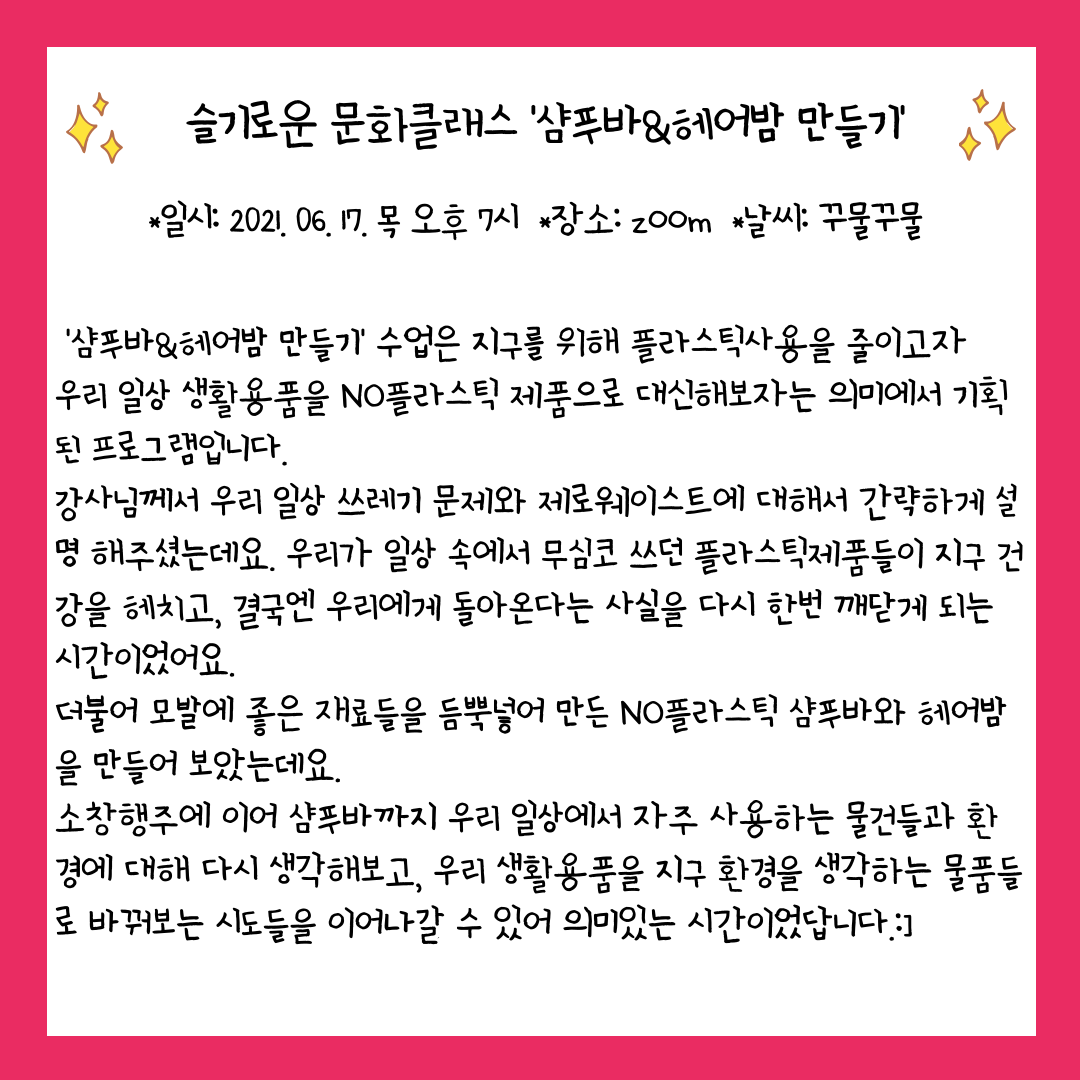 슬기로운 문화클래스 '샴푸바&헤어밤 만들기'
*일시: 2021. 06. 17. 목 오후 7시 *장소: zoom *날씨: 꾸물꾸물
'샴푸바&헤어밤 만들기' 수업은 지구를 위해 플라스틱사용을 줄이고자
우리 일상 생활용품을 NO플라스틱 제품으로 대신해보자는 의미에서 기획
된 프로그램입니다.
강사님께서 우리 일상 쓰레기 문제와 제로웨이스트에 대해서 간략하게 설
명 해주셨는데요. 우리가 일상 속에서 무심코 쓰던 플라스틱제품들이 지구 건
강을 헤치고, 결국엔 우리에게 돌아온다는 사실을 다시 한번 깨닫게 되는
시간이었어요.
더불어 모발에 좋은 재료들을 듬뿍넣어 만든 NO플라스틱 샴푸바와 헤어밤
을 만들어 보았는데요.
소창행주에 이어 샴푸바까지 우리 일상에서 자주 사용하는 물건들과 환
경에 대해 다시 생각해보고, 우리 생활용품을 지구 환경을 생각하는 물품들
로 바꿔보는 시도들을 이어나갈 수 있어 의미있는 시간이었답니다.:]